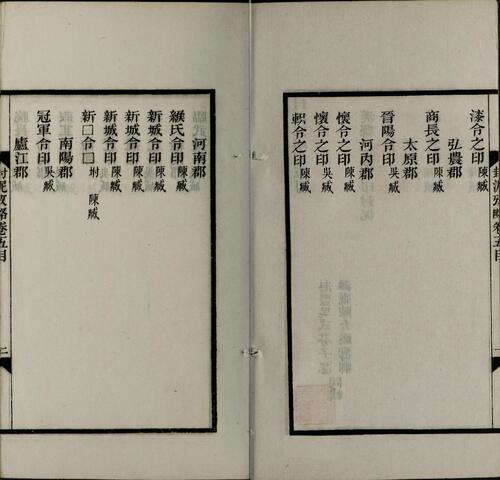 漆令之印陳臧
弘農郡
商長之印陳臧
太原郡
晉陽令印陳臧
河内郡
懷令之印陳臧
懷令之印吳臧
軹令之印陳臧
封泥攷略卷五目
河南郡
緱氏令印陳臧
新城令印吳臧
新城令印陳臧
新城令印陳臧
新□令□坿陳臧
南陽郡
冠軍令印吳臧
廬江郡
封泥攷略卷五目
二